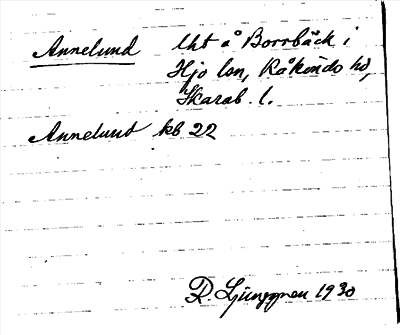 Annelund Uht å Borrbäck i
Hjo lsn, Kåkinds hd,
Skarab. l.
Annelund kb 22
R. Ljunggren 1930